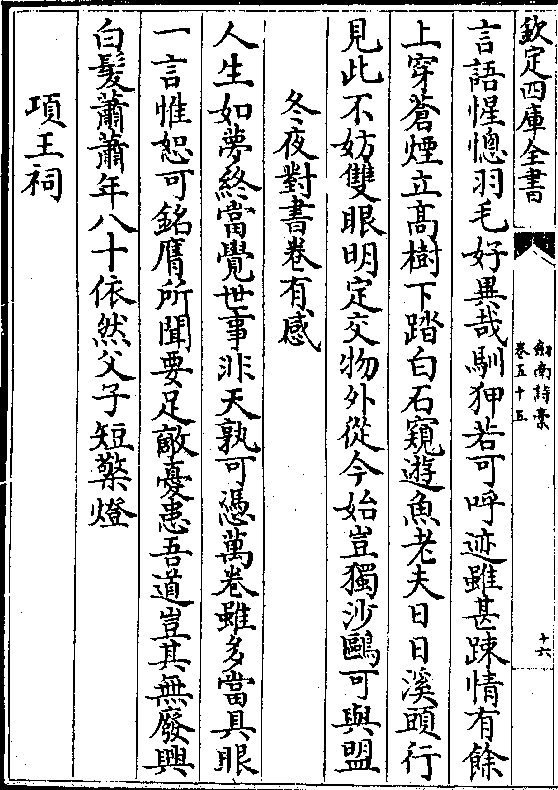 欽定四庫全書
劍南詩稾
卷五十五
十六
言語惺憁羽毛好異哉馴狎若可呼迹雖甚踈情有餘
上穿蒼煙立髙樹下踏白石窺遊魚老夫日日溪頭行
見此不妨雙眼明定交物外從今始豈獨沙鷗可與盟
冬夜對書卷有感
人生如夢終當覺世事非天孰可憑萬卷雖多當具眼
一言惟恕可銘膺所聞要足敵憂患吾道豈其無廢興
白髮蕭蕭年八十依然父子短檠燈
項王祠